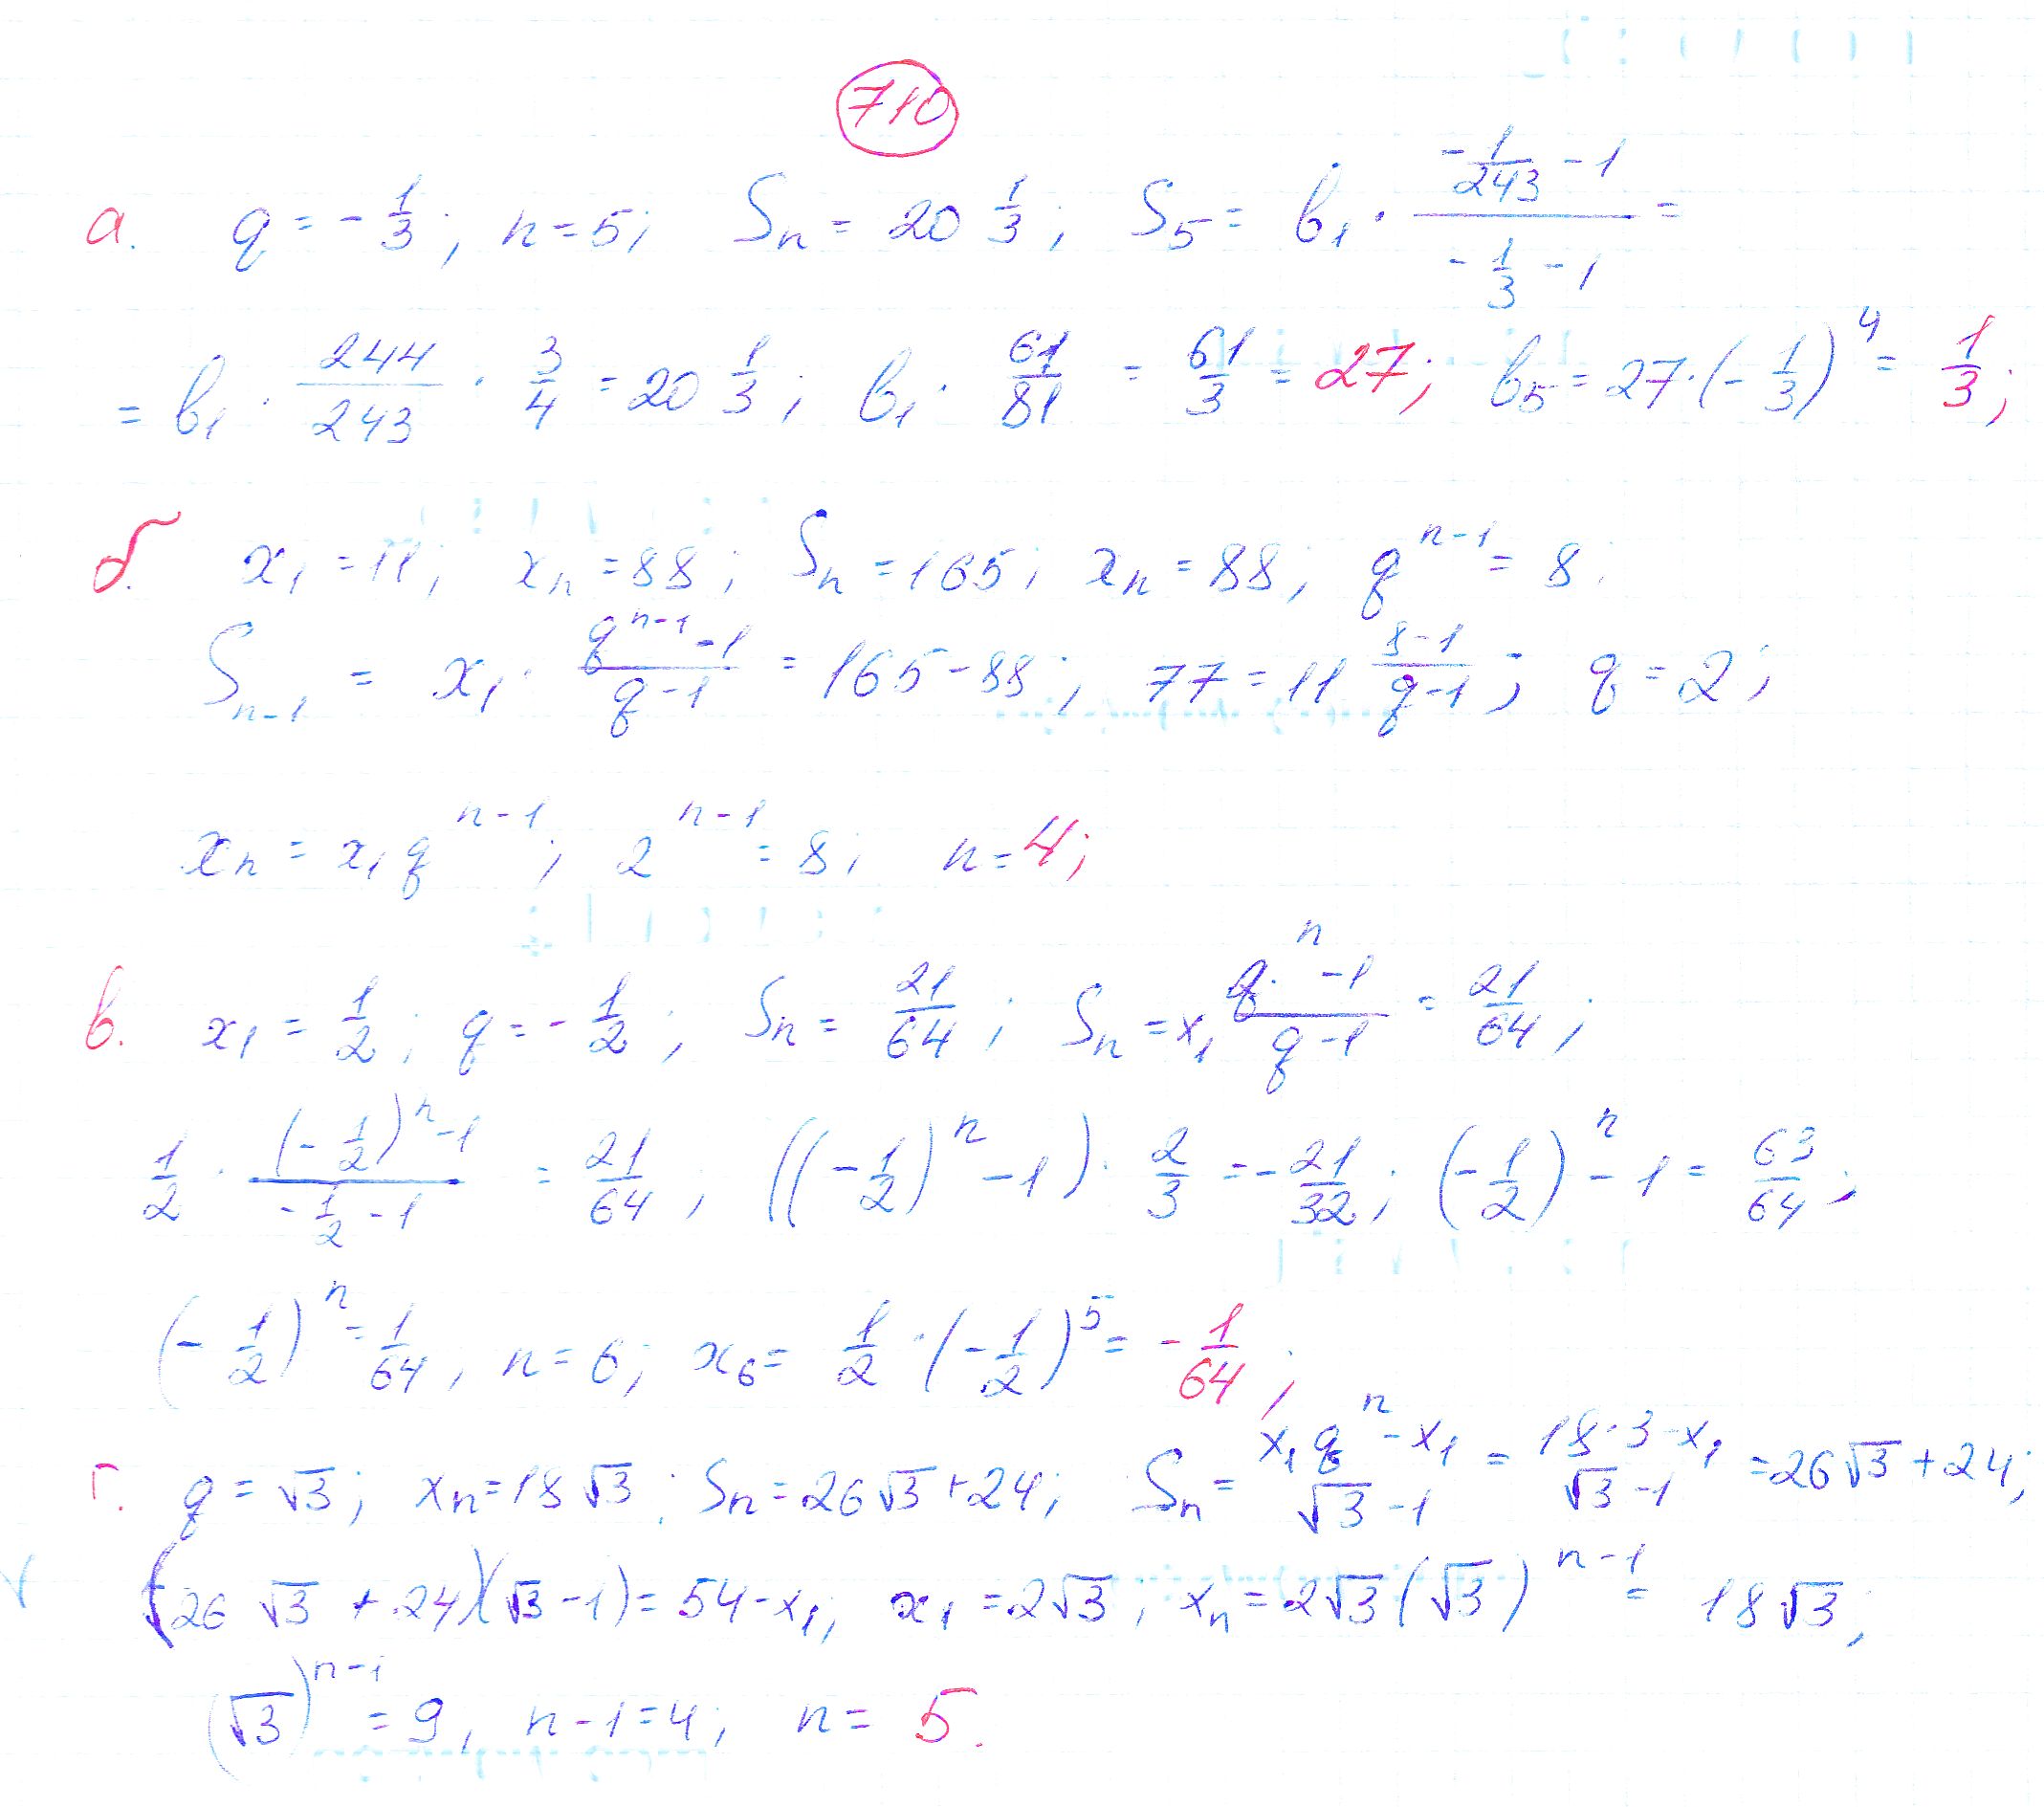 710
а. q = -1/3; n = 5; Sn = 20 1/3; S5 = b1 · (-1/243 - 1)/(-1/3 - 1) =
= b1 · 244/243 · 3/4 = 20 1/3; b1 · 61/81 = 61/3 = 27; b5 = 27·(-1/3)^4 = 1/3;
б. x1 = 11; xn = 88; Sn = 165; xn = 88; q^(n-1) = 8;
S(n-1) = x1 · (q^(n-1) - 1)/(q - 1) = 165 - 88; 77 = 11 (8-1)/(q-1); q = 2;
xn = x1 q^(n-1); 2^(n-1) = 8; n = 4;
в. x1 = 1/2; q = -1/2; Sn = 21/64; Sn = x1 (q^n - 1)/(q - 1) = 21/64;
1/2 · ((-1/2)^n - 1)/(-1/2 - 1) = 21/64; ((-1/2)^n - 1) · 2/3 = -21/32; (-1/2)^n - 1 = 63/64;
(-1/2)^n = 1/64, n = 6; x6 = 1/2 · (-1/2)^5 = -1/64;
г. q = √3; xn = 18√3; Sn = 26√3 + 24; Sn = (x1 q^n - x1)/(√3 - 1) = (18·3 - x1)/(√3 - 1) = 26√3 + 24;
(26√3 + 24)(√3 - 1) = 54 - x1; x1 = 2√3; xn = 2√3 (√3)^(n-1) = 18√3;
(√3)^(n-1) = 9, n - 1 = 4; n = 5.